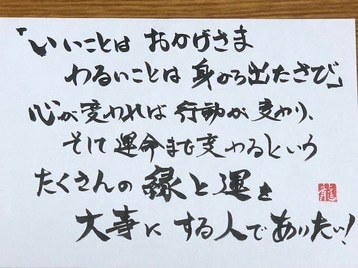 「いいことは おかげさま
わるいことは 身から出たさび」
心が変われば 行動が変わり、
そして運命まで変わるという
たくさんの 縁と運を
大事に する人で ありたい!
龍